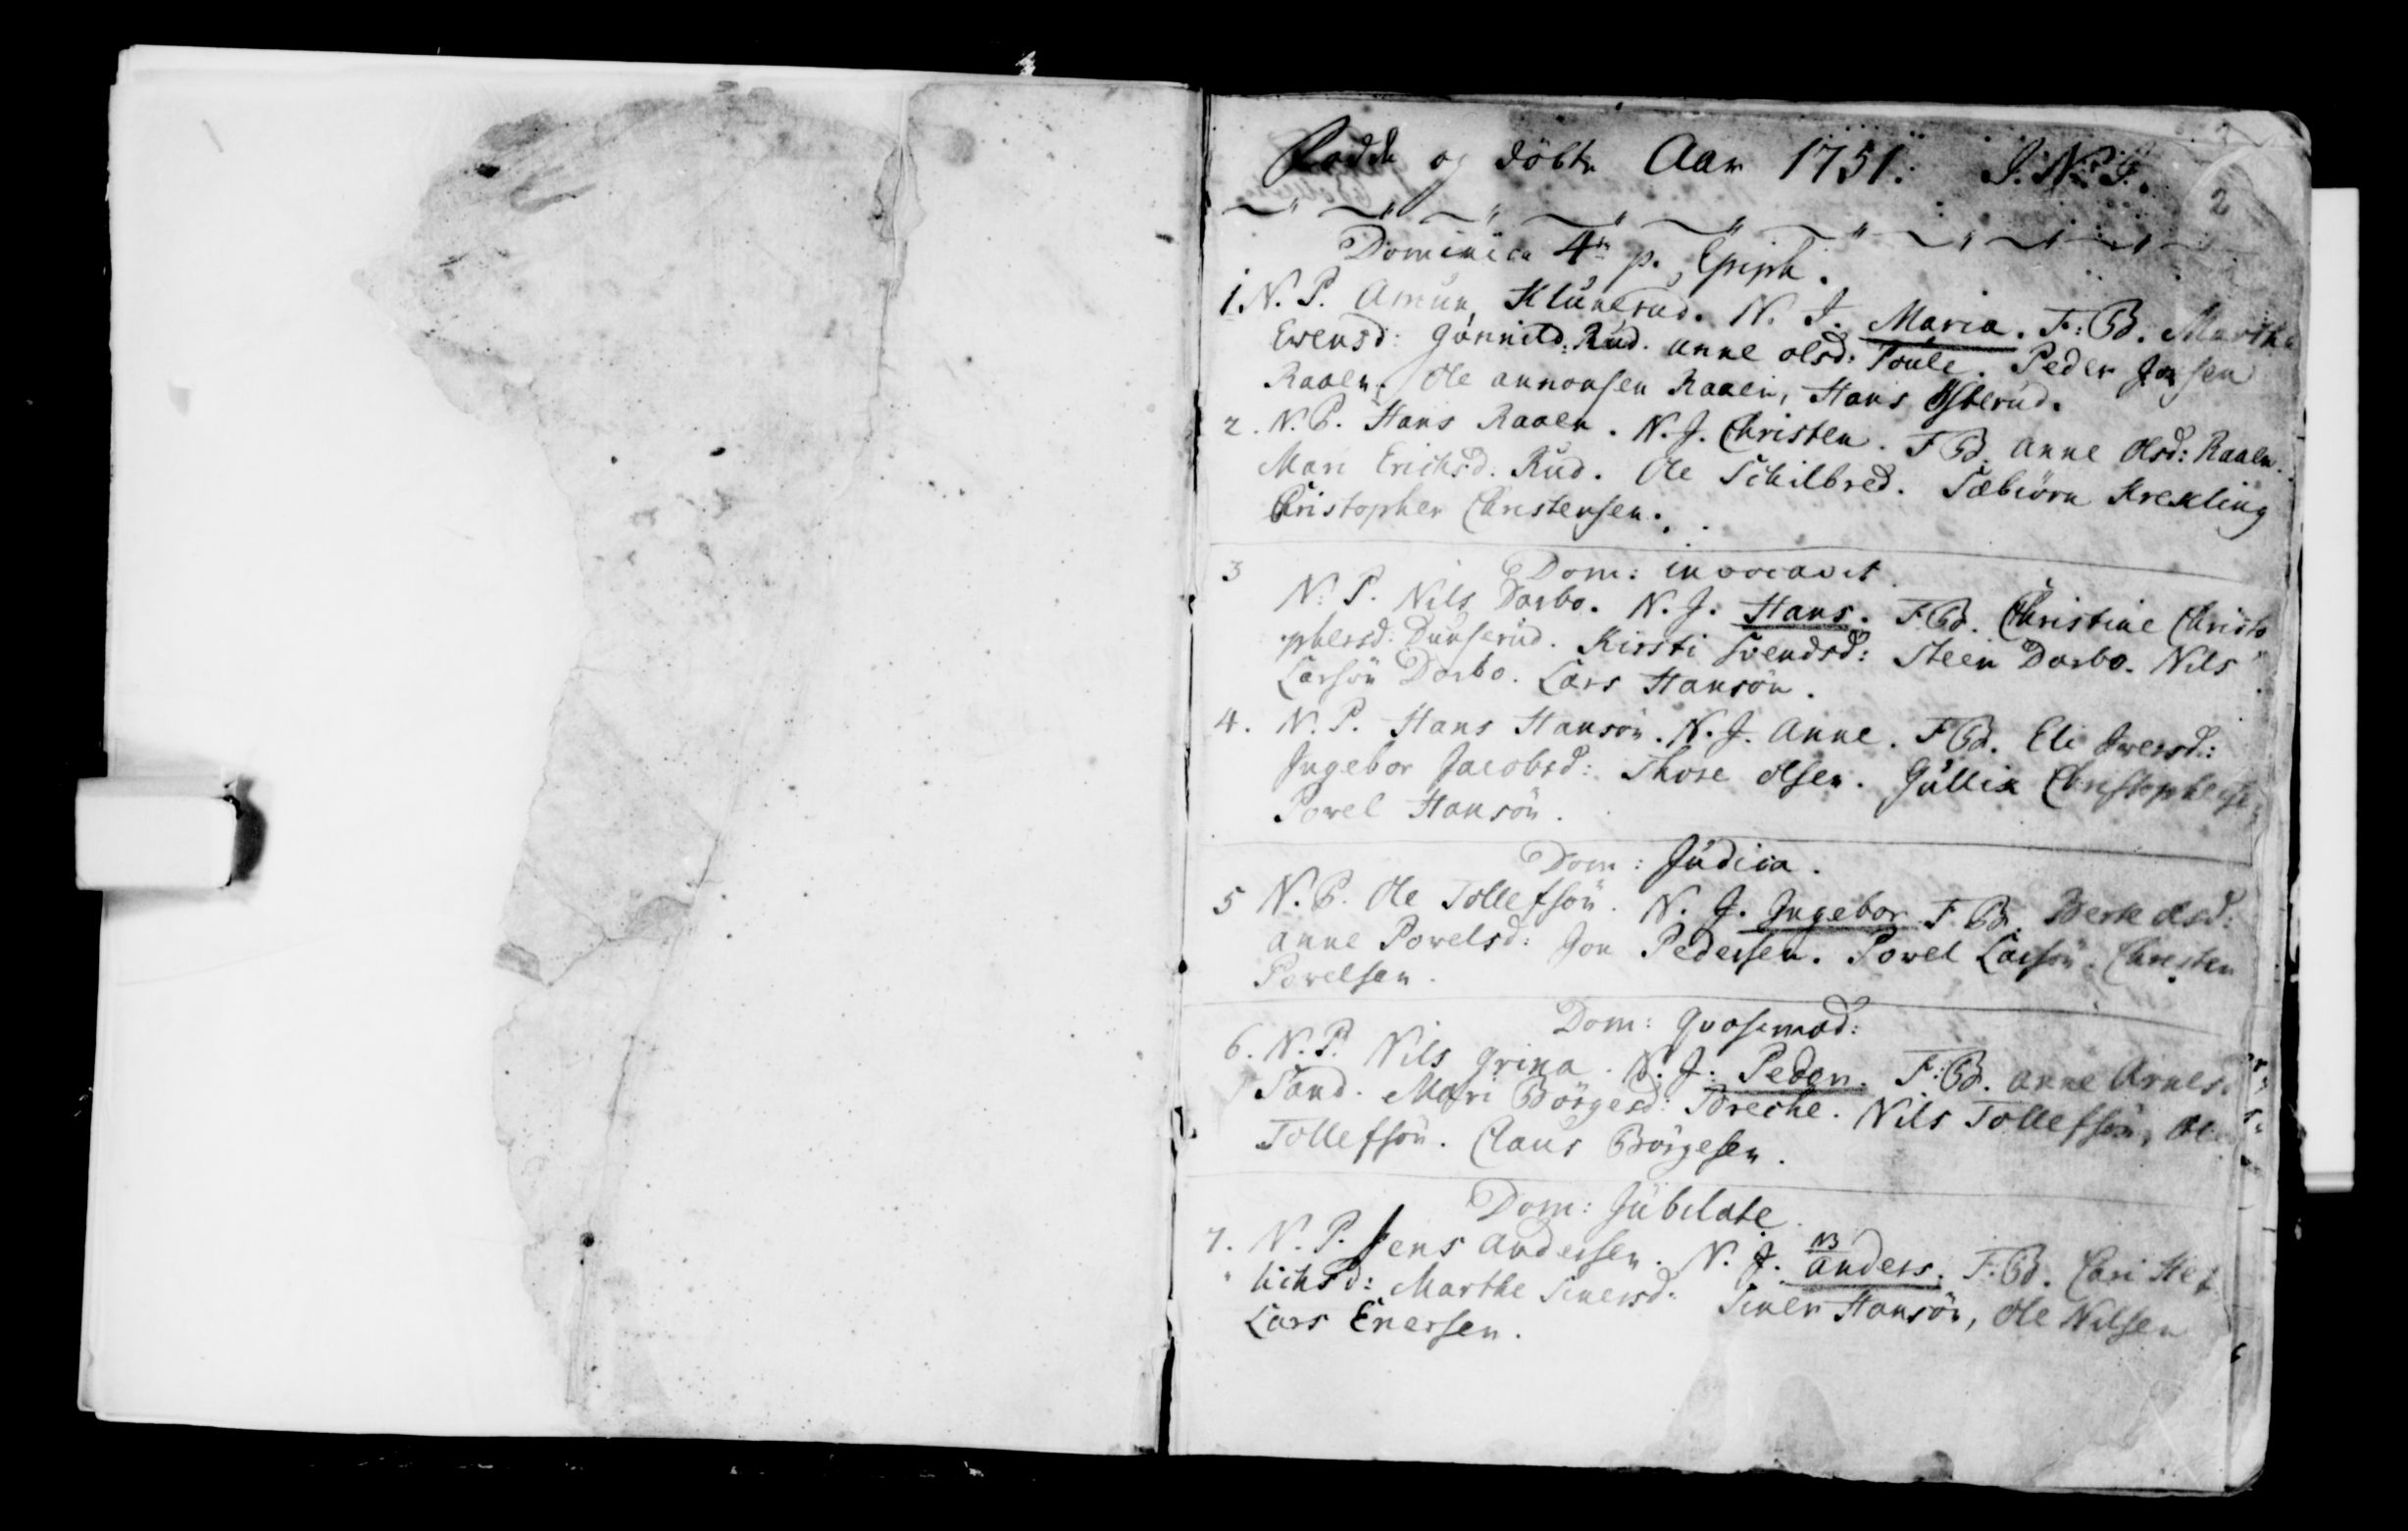 Fødde og döbte Aar 1751. I. N. J.
2
Dominica 4ta p. Epiph.
1 N. P. Amun Klunerud. N. J. Maria. F: B. Marthe
Evensd: Gunnild Rud. Anne olsd: Poule. Peder Jonsen
Raaen. Ole Amonsen Raaen, Hans Ysterud.
2. N. P. Hans Raaen. N. J. Christen. F B. Anne Olsd: Raaen.
Mari Erichsd. Rud. Ole Schilbred. Tæbiörn Krekling
Christopher Christensen.
3 Dom: invocavit
N. P. Nils Darbo. N. J: Hans. F. B. Christine Christo
phersd. Dunserud. Kirsti Svendsd: Steen Darbo. Nils
Larsön Darbo. Lars Hansön.
4. N. P. Hans Hansön. N. J. Anne. F B. Eli Iversd:
Ingebor Jacobsd: Thore Olsen. Gullix Christophers
Povel Hansön.
Dom: Judica.
5 N. P. Ole Tollefsön. N. J. Ingebor F. B. Berte olsd:
Anne Povelsd: Jon Pedersen. Povel Larsön. Christen
Povelsen.
Dom: Qvasimod:
6. N. P. Nils Grina. N. J: Peder. F: B. Anne Arnes.
Sand. Mari Börgesd: Breche. Nils Tollefsön, Ole
Tollefsön. Claus Börgesen.
Dom: Jubilate.
7. N. P. Jens Andersen. N. J. NB Anders. F. B. Cari Hel
lichsd: Marthe Simensd. Simen Hansön, Ole Nilsen
Lars Enersen.